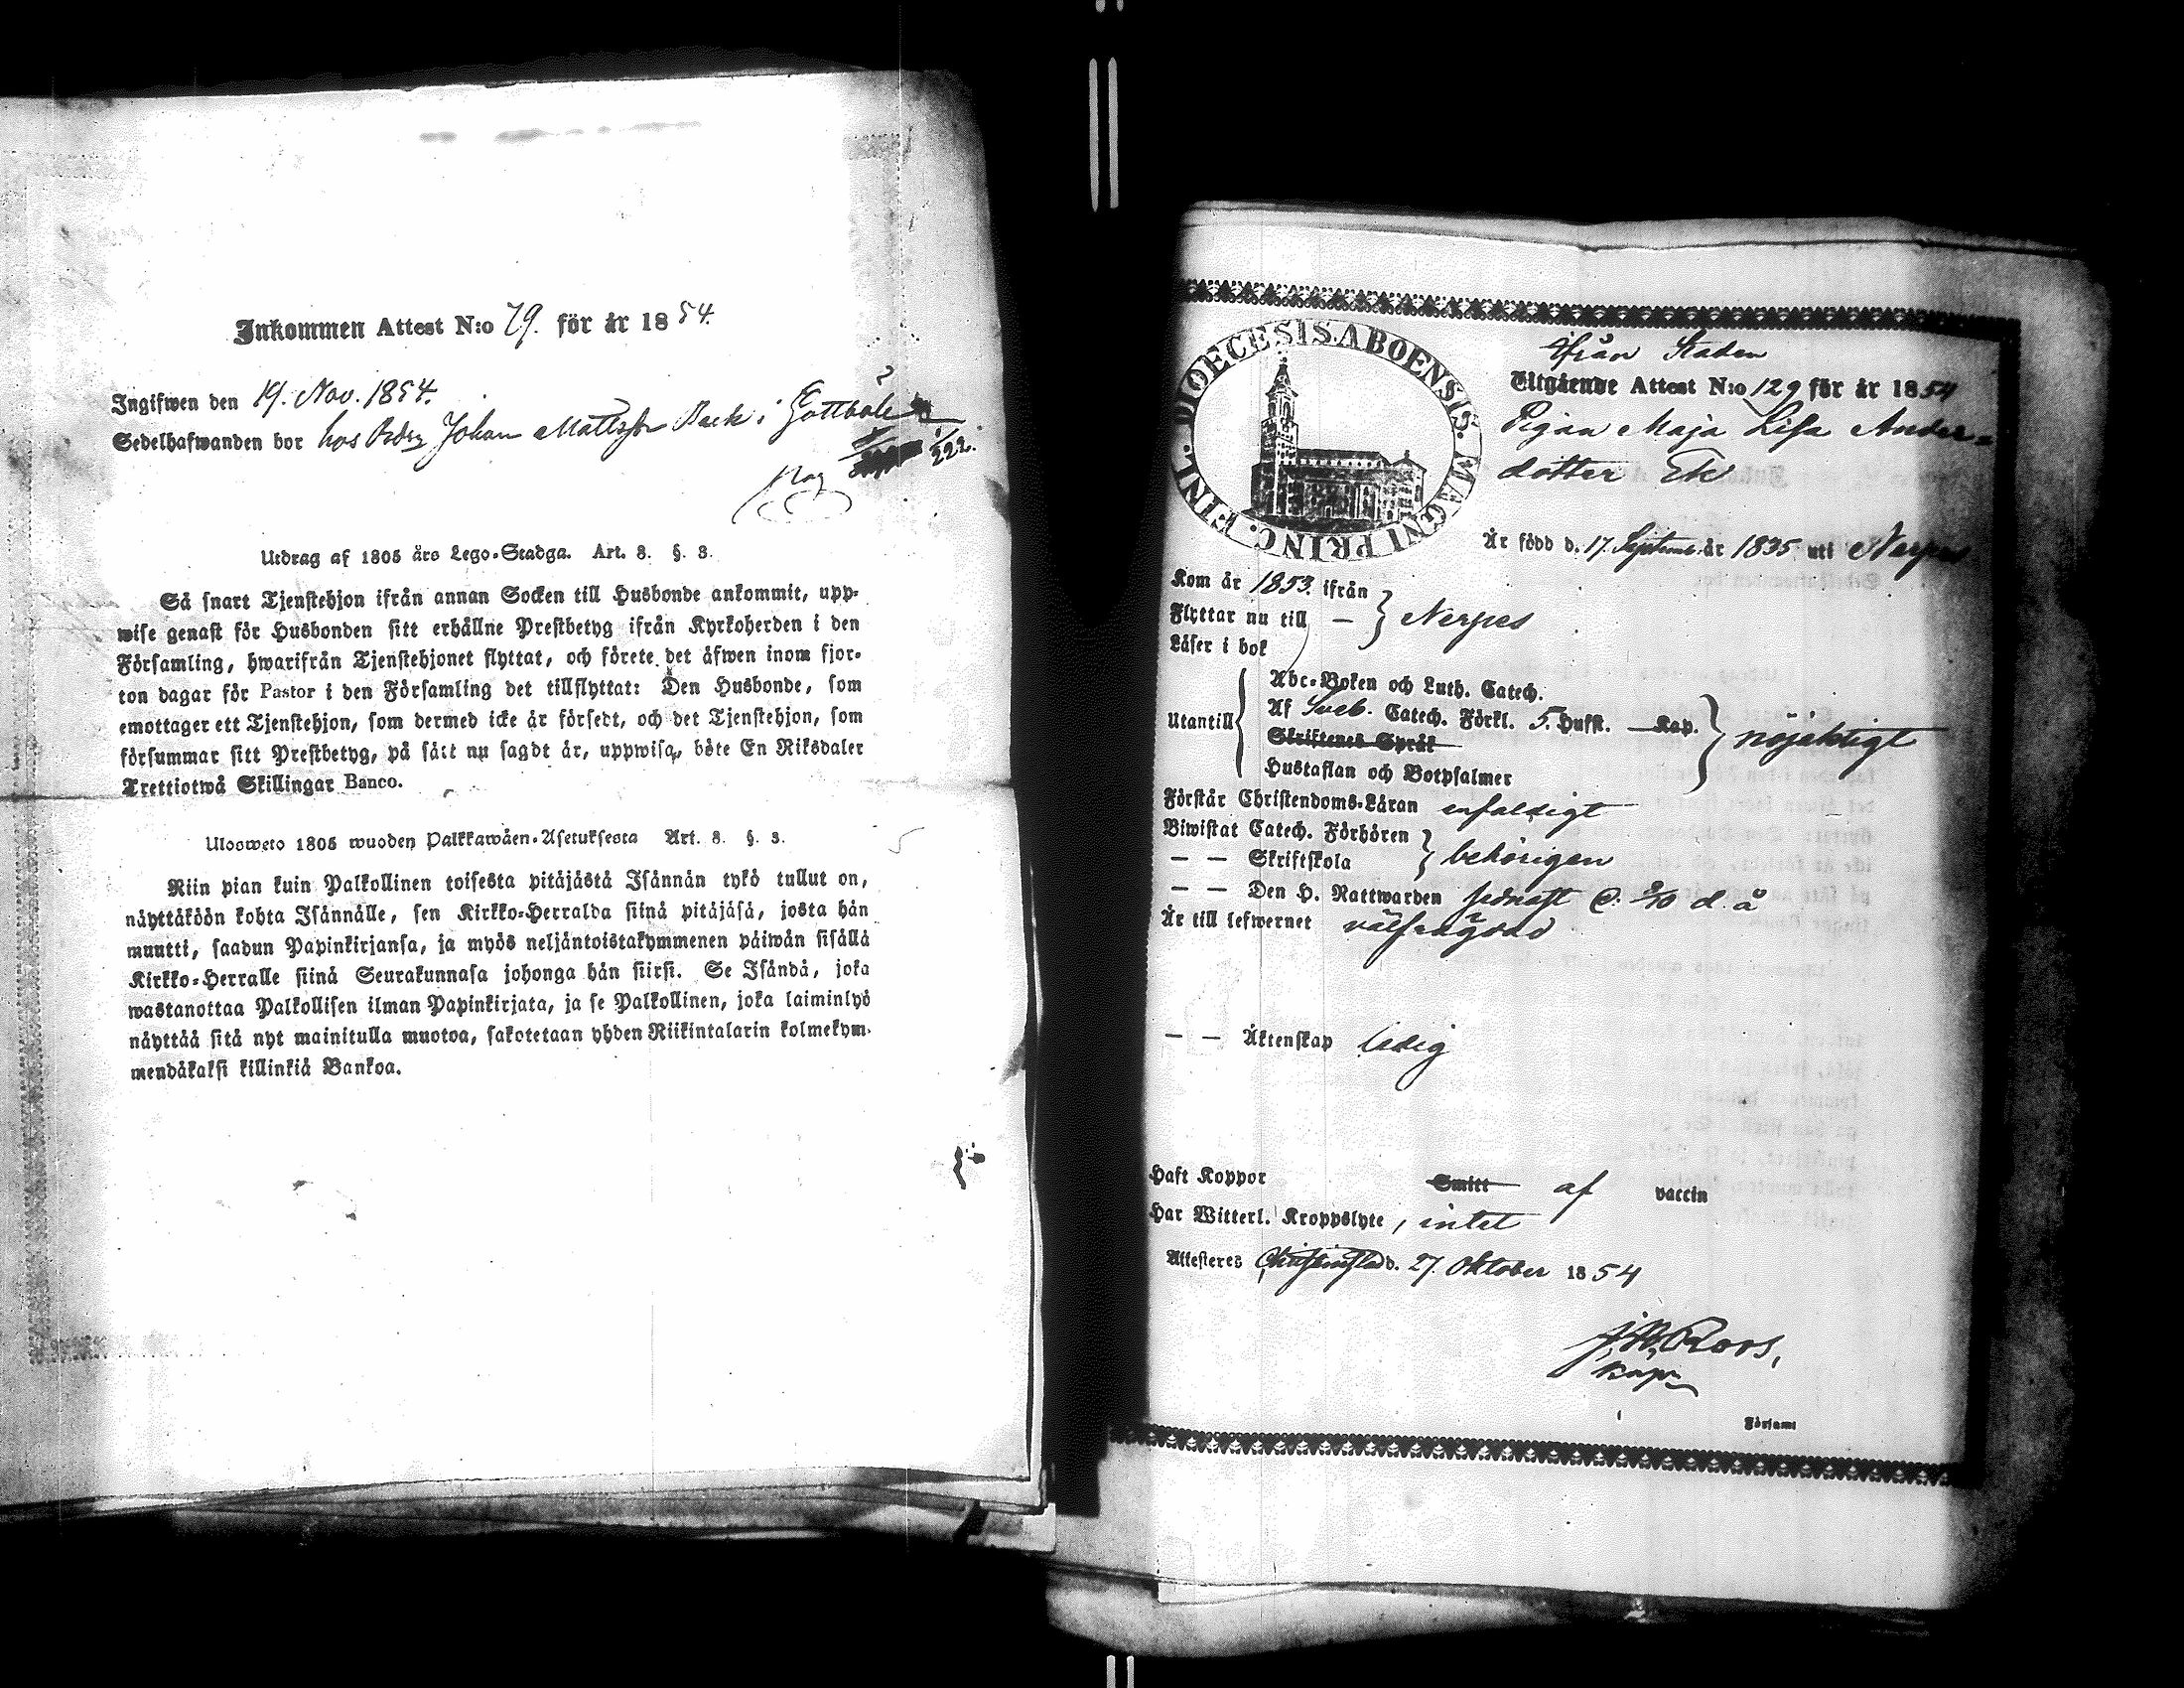 Inkommen Attest N:o 79. för år 1854.
Ingifwen den 19. Nov. 1854.
Sedelhafwanden bor hos Johan Mattsson Back i Gottböle
pag 222.
Utdrag af 1805 års Lego-Stadga. Art. 8. §. 3.
Så snart Tjenstehjon ifrån annan Socken till Husbonde ankommit, upp-
wise genast för Husbonden sitt erhållne Prestbetyg ifrån Kyrkoherden i den
Församling, hwarifrån Tjenstehjonet flyttat, och förete det äfwen inom fjor-
ton dagar för Pastor i den Församling det tillflyttat: Den Husbonde, som
emottager ett Tjenstehjon, som dermed icke är försedt, och det Tjenstehjon, som
försummar sitt Prestbetyg, på sätt nu sagdt är, uppwisa, böte En Riksdaler
Trettiotwå Skillingar Banco.
Ulosweto 1805 wuoden Palkkawäen-Asetuksesta Art. 8. §. 3.
Niin pian kuin Palkollinen toisesta pitäjästä Isännän tykö tullut on,
näyttäköön kohta Isännälle, sen Kirkko-Herralda siinä pitäjäsä, josta hän
muutti, saadun Papinkirjansa, ja myös neljäntoistakymmenen päiwän sisällä
Kirkko-Herralle siinä Seurakunnasa johonga hän siirsi. Se Isändä, joka
wastanottaa Palkollisen ilman Papinkirjata, ja se Palkollinen, joka laiminlyö
näyttää sitä nyt mainitulla muotoa, sakotetaan yhden Riikintalarin kolmekym-
mendäkaksi killinkiä Bankoa.
DIOECESIS ABOENSIS. MAGNI PRINC. FINL.
ifrån Staden
Utgående Attest N:o 129 för år 1854
Pigan Maja Lisa Anders-
dotter Ek
Är född d. 17. Septemb. år 1835 uti Nerpes
Kom år 1853. ifrån
Flyttar nu till — Nerpes
Läser i bok
Utantill
Abc-Boken och Luth. Catech.
Af Sveb. Catech. Förkl. 5. Hufst. Kap.
Skriftenes Språk
Hustaflan och Botpsalmer
nöjaktigt
Förstår Christendoms-Läran enfaldigt
Biwistat Catech. Förhören
— — Skriftskola
behörigen
— — Den H. Nattwarden sednast d. å
Är till lefwernet välfrägdad
— — Äktenskap ledig
Haft Koppor Smitt af vaccin
Har Witterl. Kroppslyte, intet
Attesteres Christinestad d. 27. Oktober 1854
Roos,
Kapn
Församl